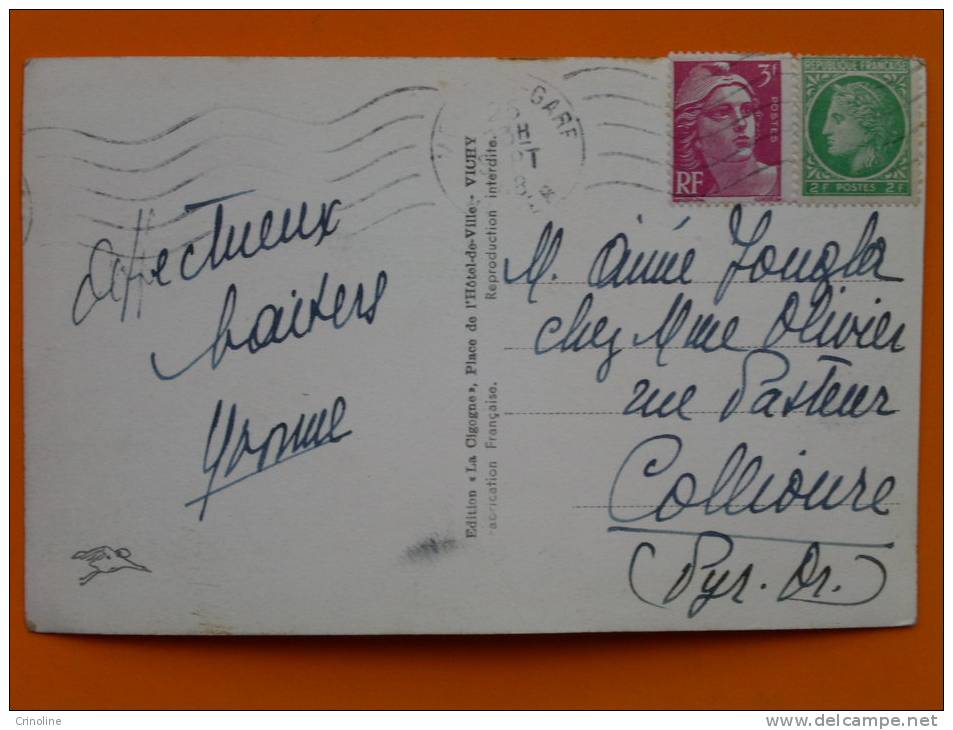 Affectueux
baisers
Yvonne
Edition « La Cigogne », Place de l'Hôtel-de-Ville - VICHY
Fabrication Française. Reproduction interdite.
GARE
3F
POSTES
RF
REPUBLIQUE FRANÇAISE
2F POSTES 2F
M. Aimé Jougla
chez Mme Olivier
rue Pasteur
Collioure
(Pyr. Or.)
Crinoline
www.delcampe.net